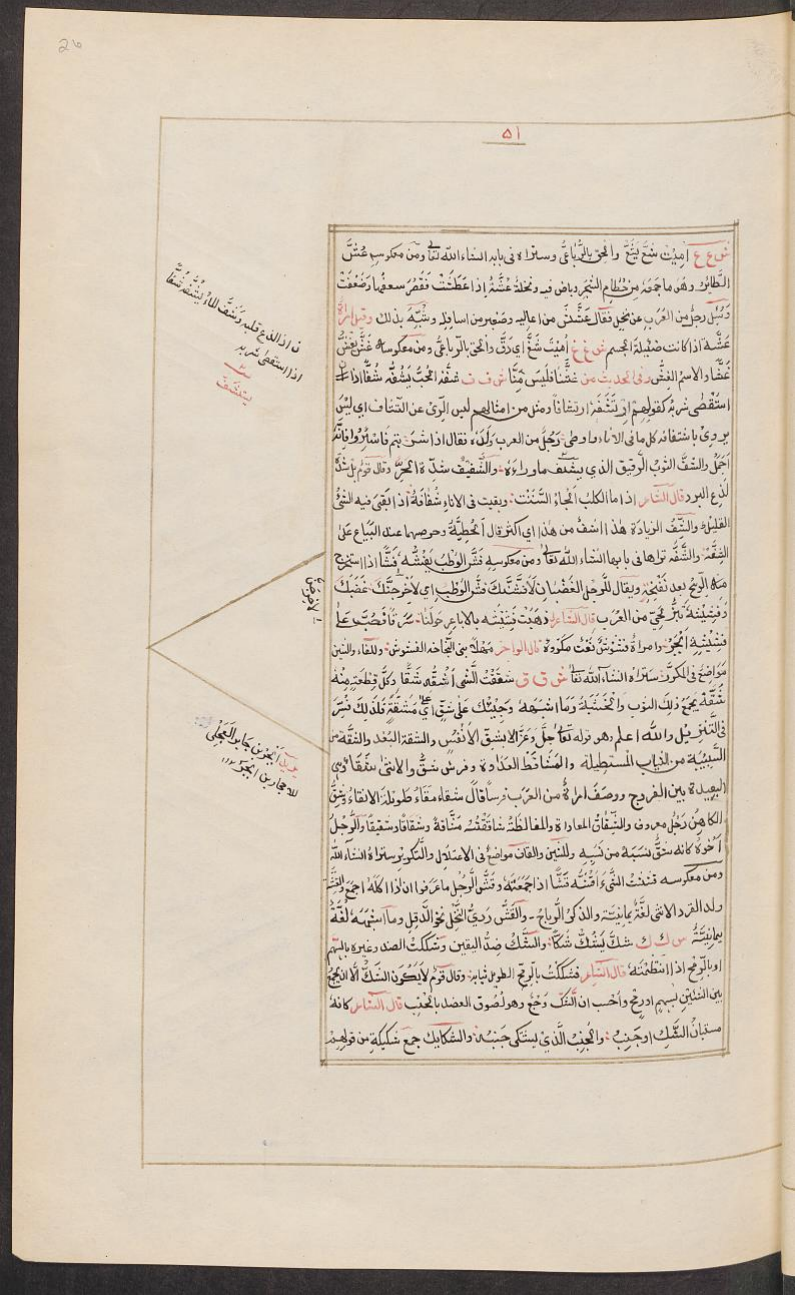 ٥١
ش ع ع أميت شع يشع وألحق بالرباعي وستراه في بابه إن شاء الله تعالى ومن معكوسه عش
الطائر وهو ما جمعه من حطام الشجر وباض فيه ونخلة عشة إذا عطشت فقصر سعفها وضعفت
رجل من العرب عن نخل فقال عشش من أعاليه وصنبر من أسافله وشبه بذلك وقيل امرأة
عشة إذا كانت ضئيلة الجسم ش غ غ أميت شغ أي دق وألحق بالرباعي ومن معكوسه غش يغش
غشا والاسم الغش وفي الحديث من غشنا فليس منا ش ف ف شفه الحب يشفه شفا إذا
استقصى شربه كقولهم ومثل من أمثالهم ليس الري عن التشاف أي ليس
يروي باشتفافه كل ما في الإناء وأوصى رجل من العرب ولده فقال إذا شربتم فأسئروا فإنه
أجمل والشف الثوب الرقيق الذي يستشف ما وراءه والشفيف شدة الحر وقال قوم بل شدة
لذع البرد قال الشاعر إذا ما الكلب ألجأه الشفيف وبقيت في الإناء شفافة إذا بقي فيه الشئ
القليل والشف الزيادة هذا أشف من هذا أي أكثر قال الحطيئة وحرصهما عند البياع على
الشفة والشفة تراها في بابها إن شاء الله تعالى ومن معكوسه فش الوطب يفشه فشا إذا استخرج
منه الريح بعد نفخه ويقال للرجل الغضبان لأفشنك فش الوطب أي لأخرجنك غضبك
وفشيشة نبز لحي من العرب قال الشاعر ذهبت فشيشة بالأباعر حولنا سرقا فصب على
فشيشة أبجر وامرأة فشوش نعت مكروه قال الراجز مهلا بني النخاخة الفشوش وللفاء والشين
مواضع في المكرر ستراه إن شاء الله تعالى ش ق ق شققت الشئ أشقه شقا وكل قطعة منه
شقة يجمع ذلك الثوب والخشبة وما أشبهه وجئتك على شق أي على مشقة فلذلك فسر
في التنزيل والله أعلم وهو قوله تعالى جل وعز إلا بشق الأنفس والشقة البعد والشقة من
السبيبة من الثياب المستطيلة والمشاقة العداوة وفرس شق والأنثى شقاء وهي
البعيدة بين الفروج ووصف امرأة من العرب فرسا قال شقاء مقاء طويلة الأنقاء وشق
الكاهن رجل معروف والشقاق المعاداة والمغالظة شاققته مشاقة وشقاقا وشقيقا والرجل
أخوه كأنه شق نسبه من نسبه وللشين والقاف مواضع في الاعتلال والتكرير ستراه إن شاء الله
ومن معكوسه قششت الشيء أقشه قشا إذا جمعته وقش الرجل ما على الخوان إذا أكله أجمع والقشة
ولد القرد الأنثى لغة يمانية والذكر الرباح والقش ردي النخل نحو الدقل وما أشبهه لغة
يمانية ش ك ك شك يشك شكا والشك ضد اليقين وشككت الصيد وغيره بالسهم
أو بالرمح إذا انتظمته قال الشاعر فشككت بالرمح الطويل ثيابه وقال قوم لا يكون الشك إلا أن يجمع
بين الشيئين بسهم أو رمح وأحسب أن الشك وجع وهو لصوق العضد بالجنب قال الشاعر كأنه
مستبان الشك أو جنب والجنب الذي يشتكي جنبه والشكايك جمع شكيكة من قولهم
إذا لذع قلبه وشف الماء يشفه شفا
إذا استقصى شربه
يستشف
يريد أبجر بن جابر العجلي